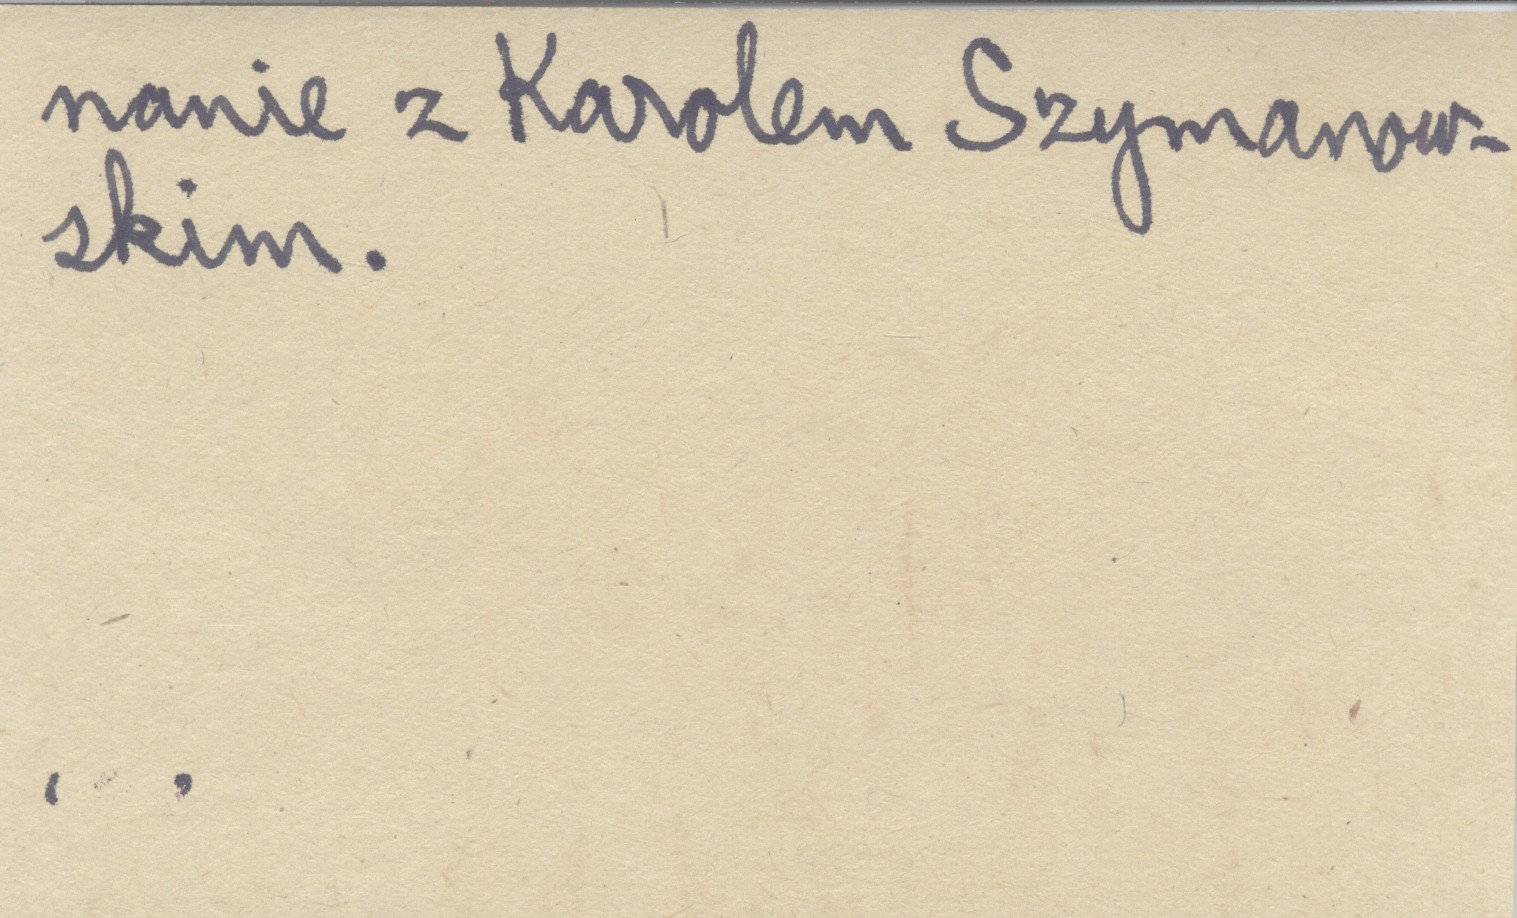 nanie z Karolem Szymanow-
skim.